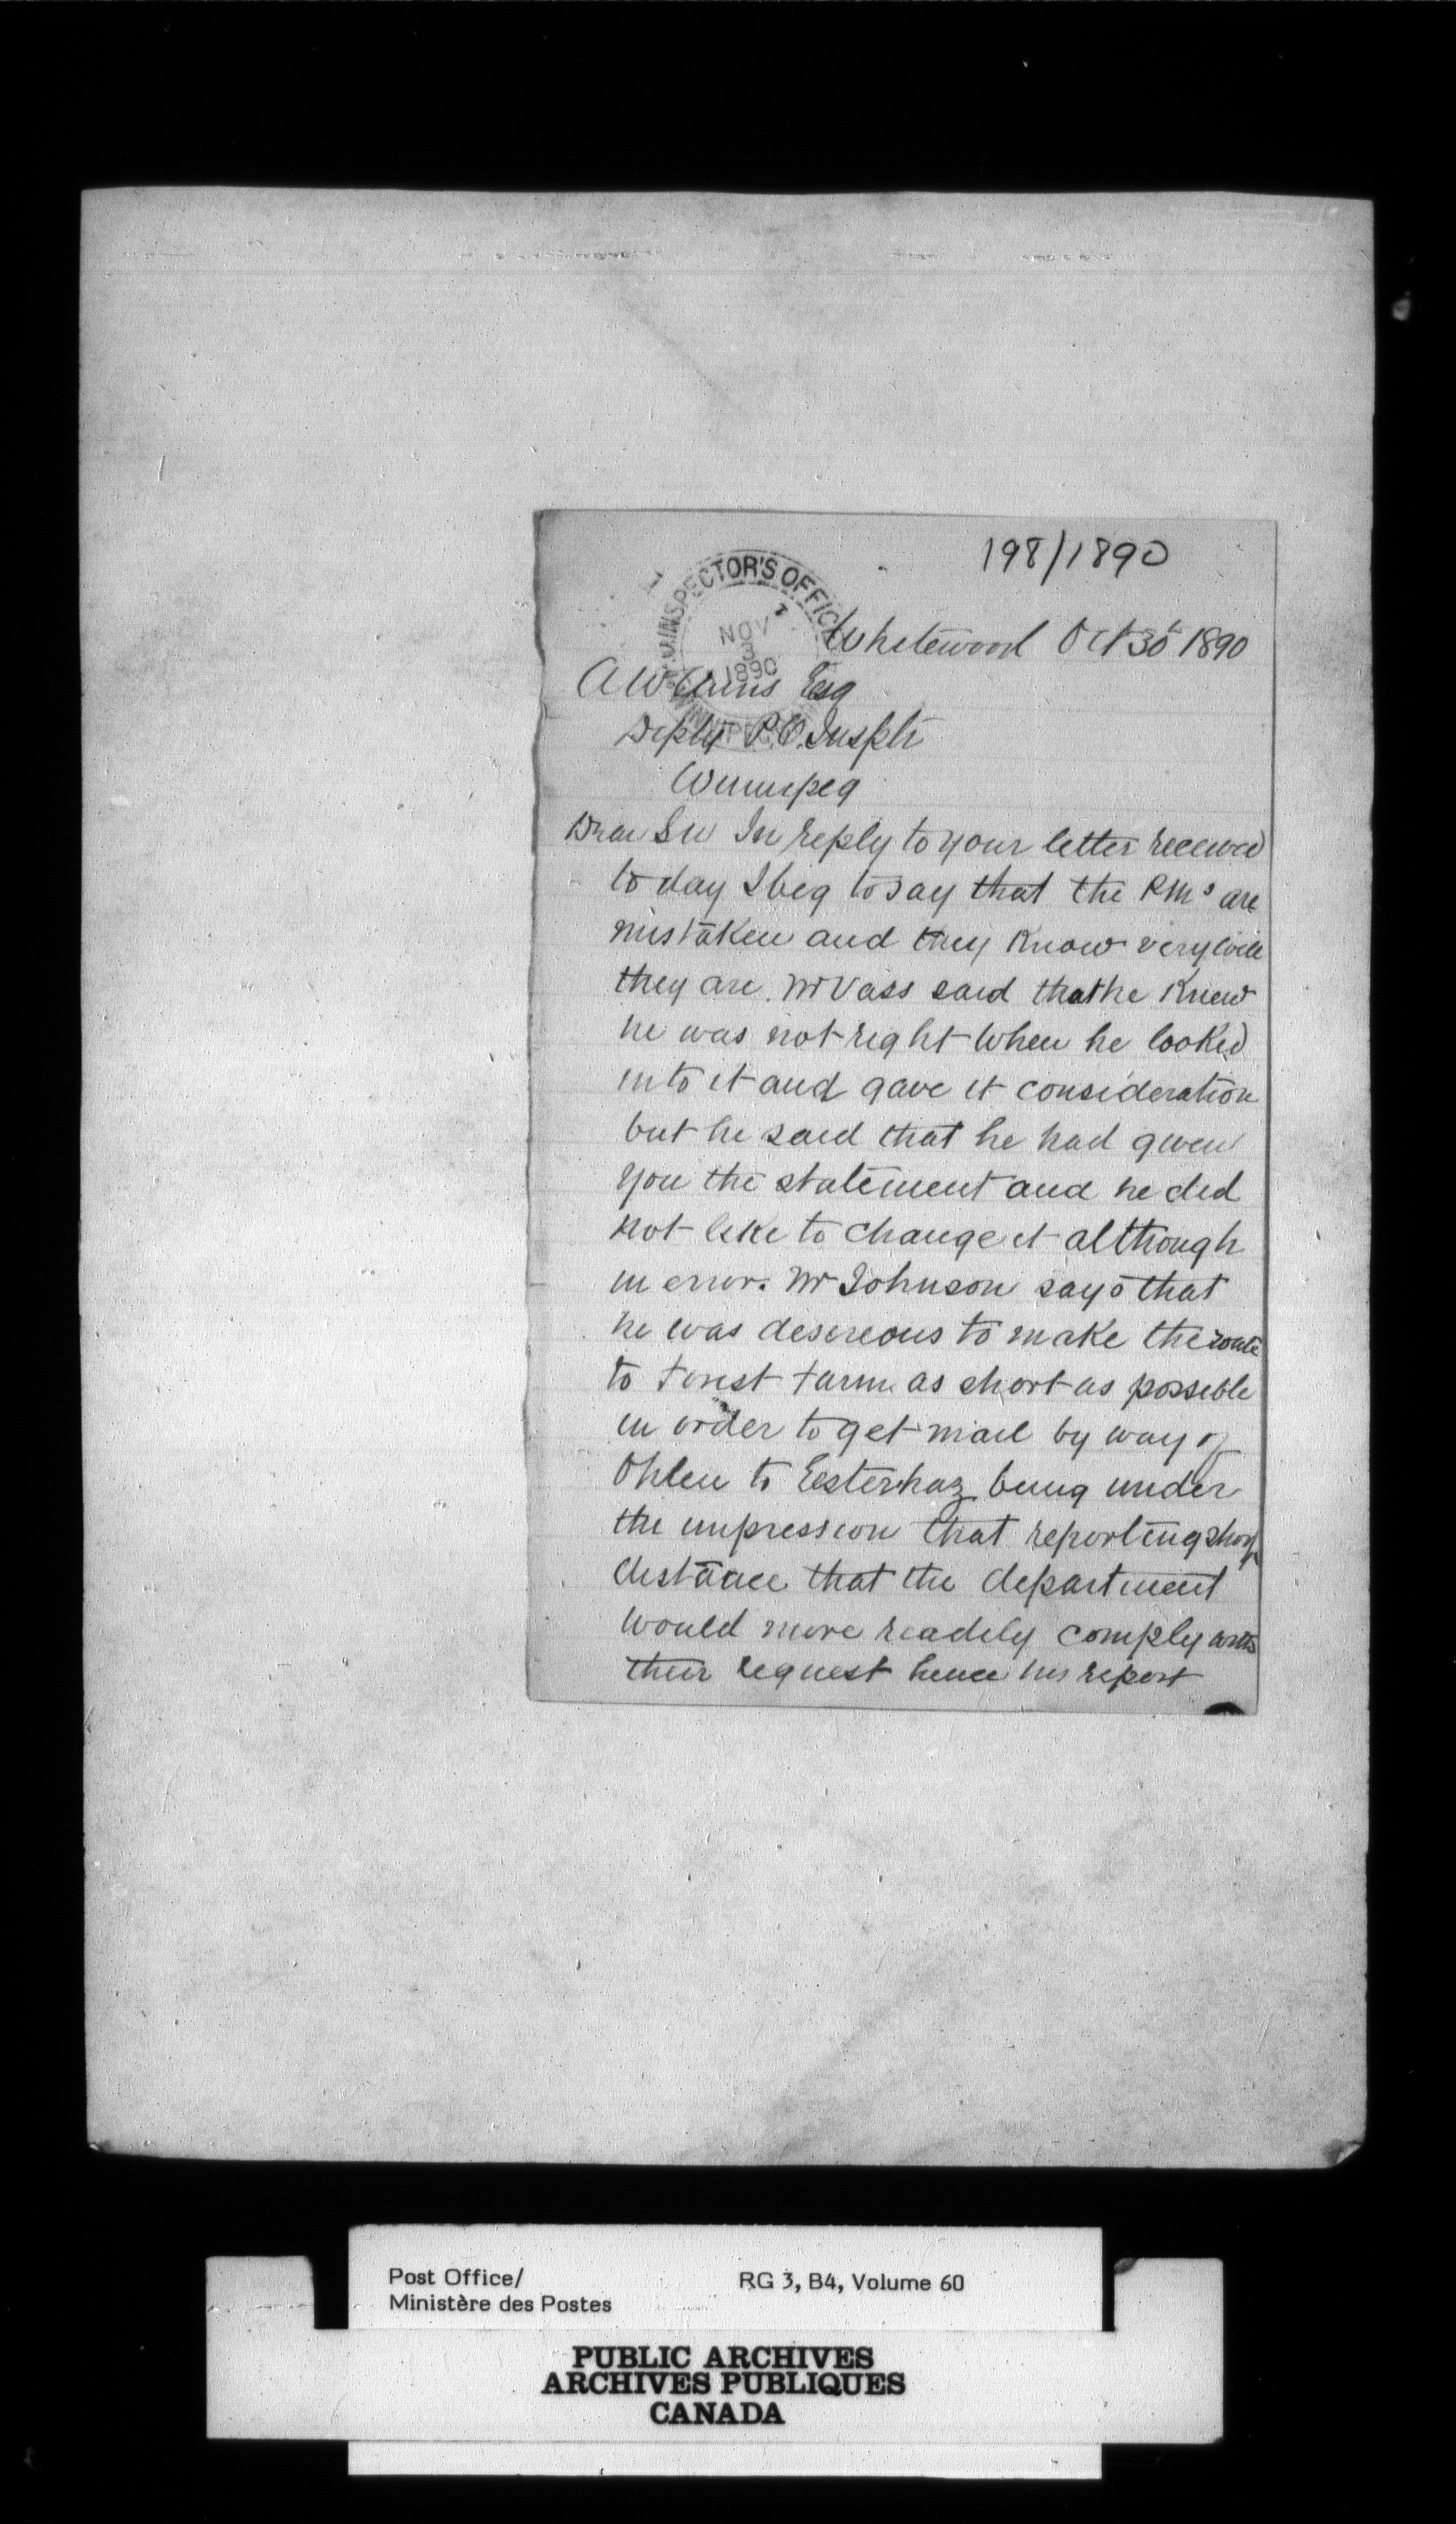 198/1890
INSPECTOR'S OFFICE
NOV
3
1890
Whitewood Oct 30th 1890
A W Esq
Depty P.O. Insptr
Winnipeg
Dear Sir In reply to your letter received
to day I beg to say that the P Ms are
mistaken and they know very well
they are. Mr Vass said that he knew
he was not right when he looked
into it and gave it consideration
but he said that he had given
you the statement and he did
not like to change it although
in error. Mr Johnson says that
he was desireous to make the route
to Forest Farm as short as possible
in order to get mail by way of
Ohlen to Eesterhaz being under
the impression that reporting short
distance that the department
would more readily comply with
their request hence his report
Post Office/
Ministère des Postes
RG 3, B4, Volume 60
PUBLIC ARCHIVES
ARCHIVES PUBLIQUES
CANADA